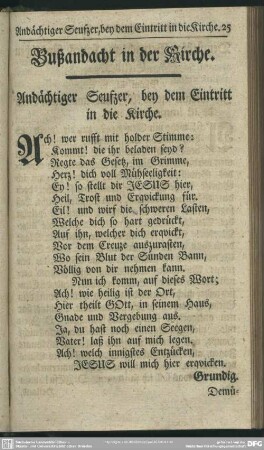 Andächtiger Seufzer, bey dem Eintritt in die Kirche. 25
Bußandacht in der Kirche.
Andächtiger Seufzer, bey dem Eintritt
in die Kirche.
Ach! wer rufft mit holder Stimme:
Kommt! die ihr beladen seyd?
Regte das Gesetz, im Grimme,
Herz! dich voll Mühseeligkeit:
Ey! so stellt dir JESUS hier,
Heil, Trost und Erqvickung für.
Eil! und wirf die schweren Lasten,
Welche dich so hart gedrückt,
Auf ihn, welcher dich erqvickt,
Vor dem Creuze auszurasten,
Wo sein Blut der Sünden Bann,
Völlig von dir nehmen kann.
Nun ich komm, auf dieses Wort;
Ach! wie heilig ist der Ort,
Hier theilt GOtt, in seinem Haus,
Gnade und Vergebung aus.
Ja, du hast noch einen Seegen,
Vater! laß ihn auf mich legen.
Ach! welch innigstes Entzücken,
JESUS will mich hier erqvicken.
Grundig.
Demü-